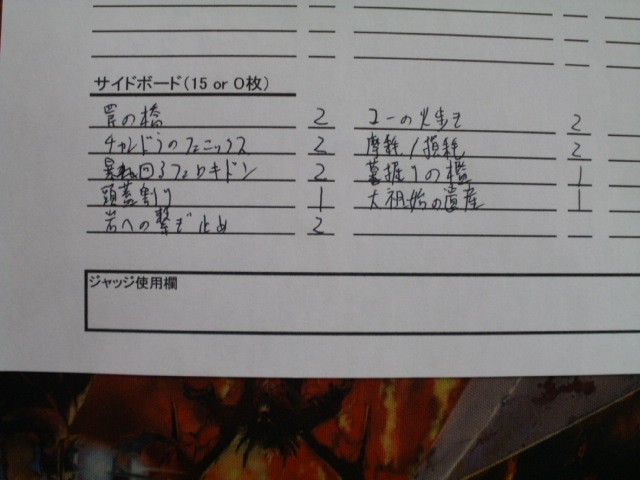 サイドボード(15 or 0枚)
罠の橋 2
チャンドラのフェニックス 2
暴れ回るフェロキドン 2
頭蓋割り 1
岩への繋ぎ止め 2
コーの火歩き 2
摩耗/損耗 2
墓掘りの檻 1
大祖始の遺産 1
ジャッジ使用欄